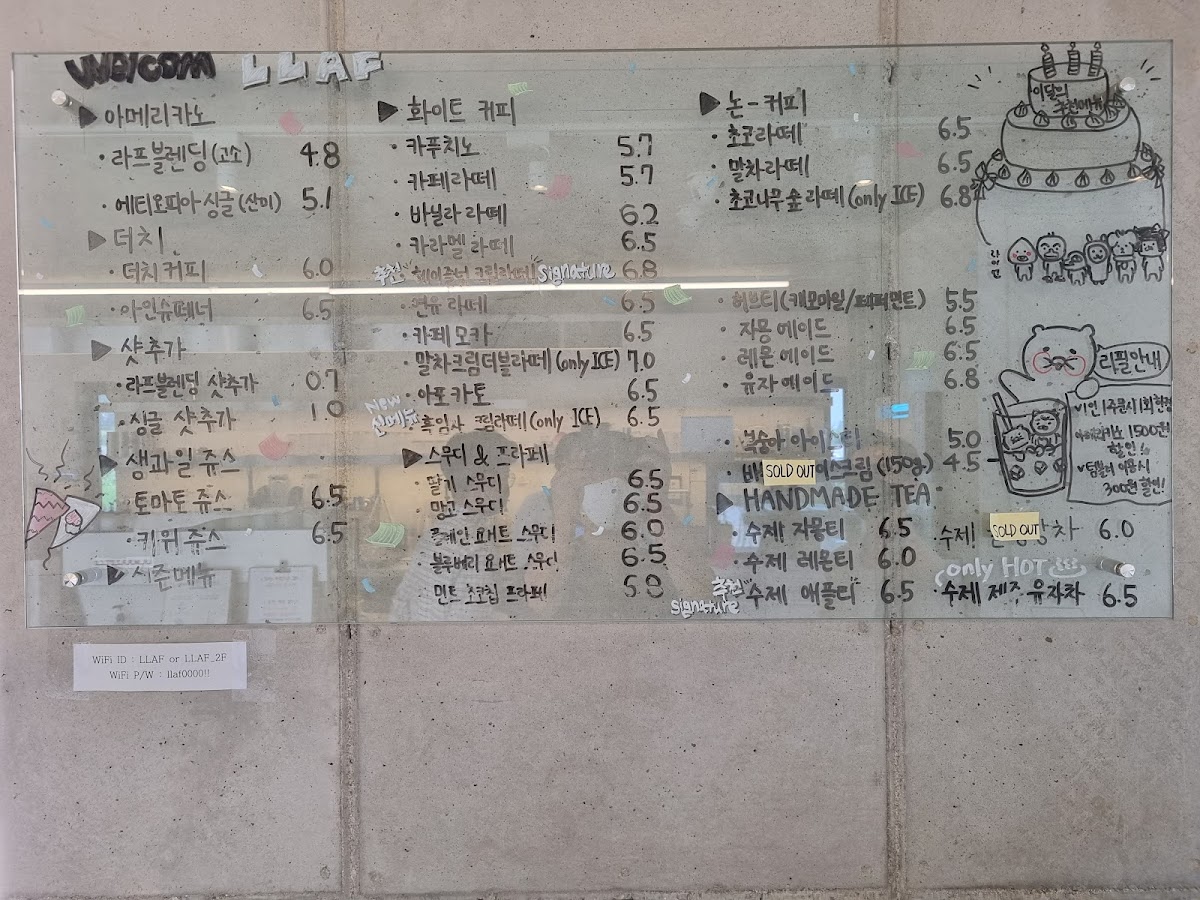 WElCOM LLAF
▶ 아메리카노
· 라프블렌딩(고소) 4.8
· 에티오피아 싱글(산미) 5.1
▶ 더치
· 더치커피 6.0
· 아인슈페너 6.5
▶ 샷추가
· 라프블렌딩 샷추가 0.7
· 싱글 샷추가 1.0
▶ 생과일쥬스
· 토마토쥬스 6.5
· 키위쥬스 6.5
▶ 시즌메뉴
▶ 화이트 커피
· 카푸치노 5.7
· 카페라떼 5.7
· 바닐라 라떼 6.2
· 카라멜 라떼 6.5
추천 헤이즐넛 크림라떼 Signature 6.8
· 연유 라떼 6.5
· 카페모카 6.5
· 말차크림더블라떼 (only ICE) 7.0
· 아포카토 6.5
New 신메뉴 · 흑임자 크림라떼 (only ICE) 6.5
▶ 스무디 & 프라페
· 딸기 스무디 6.5
· 망고 스무디 6.5
· 플레인 요거트 스무디 6.0
· 블루베리 요거트 스무디 6.5
· 민트 초코칩 프라페 5.8
▶ 논-커피
· 초코라떼 6.5
· 말차라떼 6.5
· 초코나무 숲 라떼 (only ICE) 6.8
· 허브티 (캐모마일/페퍼민트) 5.5
· 자몽에이드 6.5
· 레몬에이드 6.5
· 유자에이드 6.8
· 복숭아 아이스티 5.0
SOLD OUT 이스크림 (150g) 4.5
▶ HANDMADE TEA
· 수제 자몽티 6.5
· 수제 레몬티 6.0
추천 signature · 수제 애플티 6.5
· 수제 SOLD OUT 차 6.0
(only HOT)
· 수제 제주 유자차 6.5
이달의
추천메뉴
리필안내
✓1인 1주문시 1회 한정
아메리카노 1500원
할인!
✓텀블러 이용시
300원 할인!
WiFi ID : LLAF or LLAF_2F
WiFi P/W : llaf0000!!